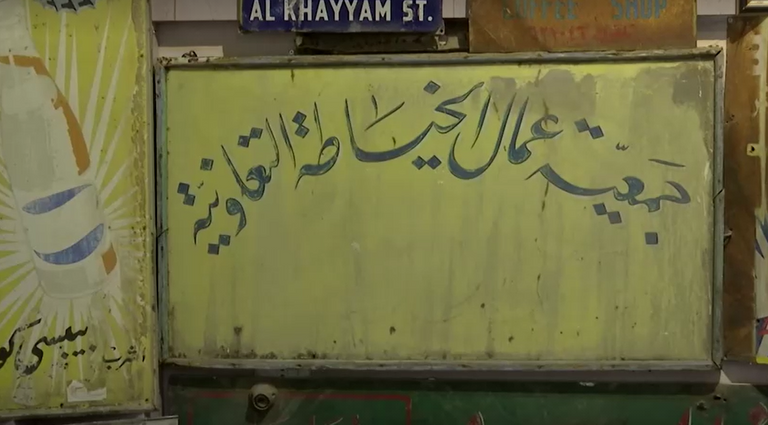 AL KHAYYAM ST.
COFFEE SHOP
جمعيّة عمال الخياطة التعاونيّة
اشرب بيبسي